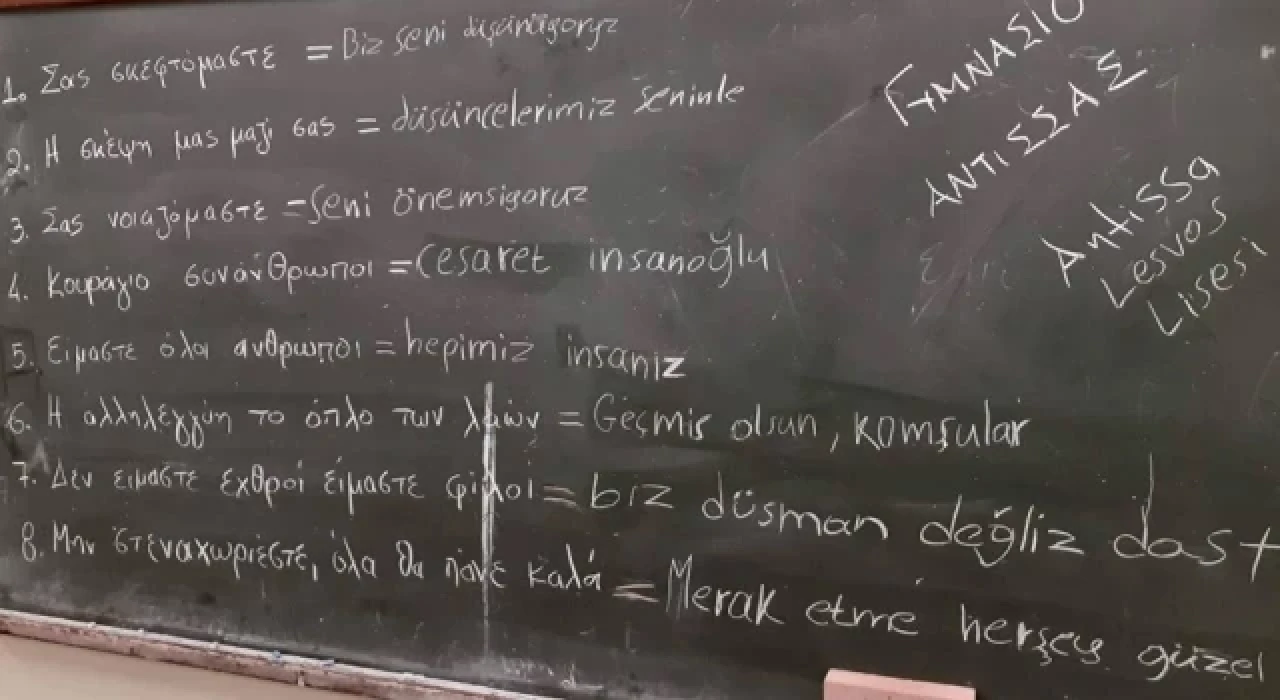 1. Σας σκεφτόμαστε = Biz seni düşünüyoryz
2. Η σκέψη μας μαζί σας = düşüncelerimiz seninle
3. Σας νοιαζόμαστε = seni önemsiyoruz
4. Κουράγιο συνάνθρωποι = cesaret insanoğlu
5. Είμαστε όλοι άνθρωποι = hepimiz insanız
6. Η αλληλεγγύη το όπλο των λαών = Geçmiş olsun, komşular
7. Δεν ειμαστε εχθροί είμαστε φίλοι = biz düşman değliz dost
8. Μην στεναχωριέστε, όλα θα πάνε καλά = Merak etme herşey güzel
ΓΥΜΝΑΣΙΟ
ΑΝΤΙΣΣΑΣ
Antissa
Lesvos
Lisesi